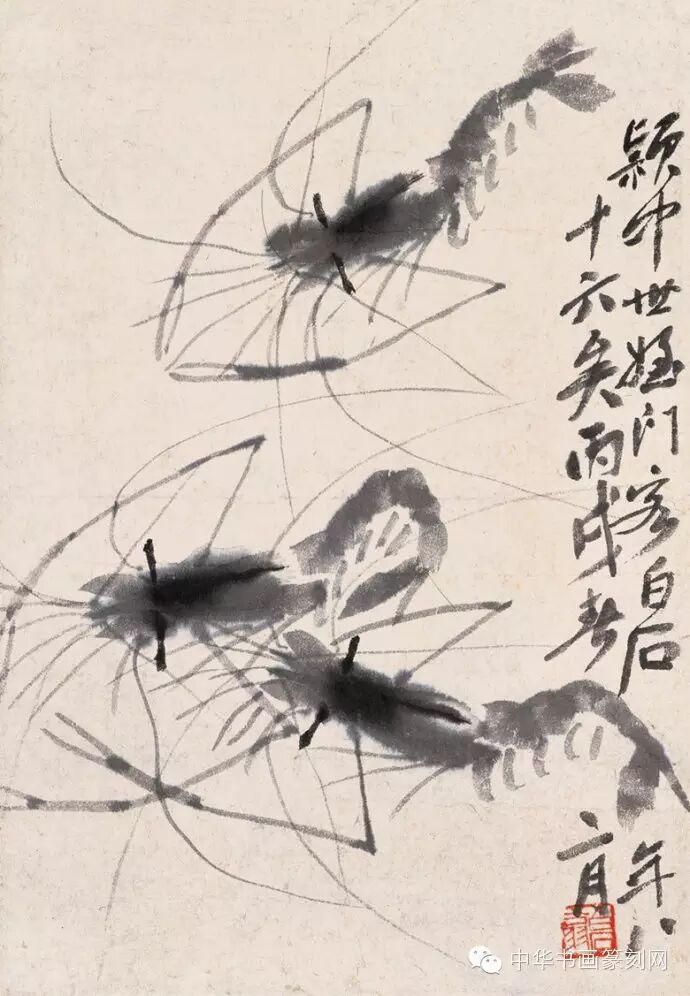 颖中世姪白石年八
十六矣丙戌春二月
中华书画篆刻网